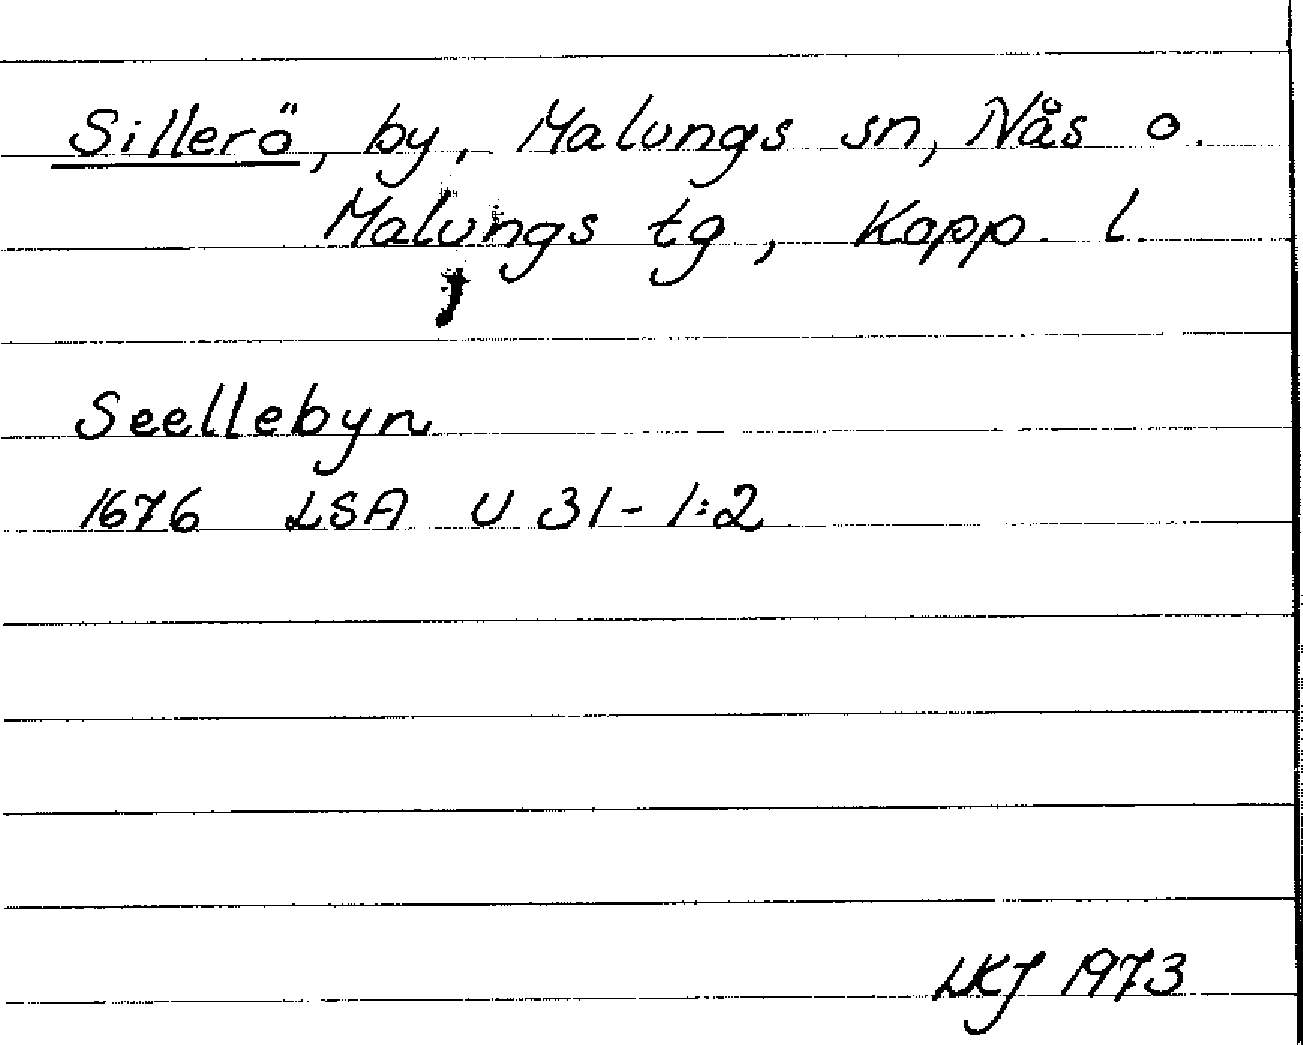 Sillerö, by, Malungs sn, Nås o.
Malungs tg, Kopp. l.
Seellebyn
1676 LSA U 31-1:2
LKJ 1973